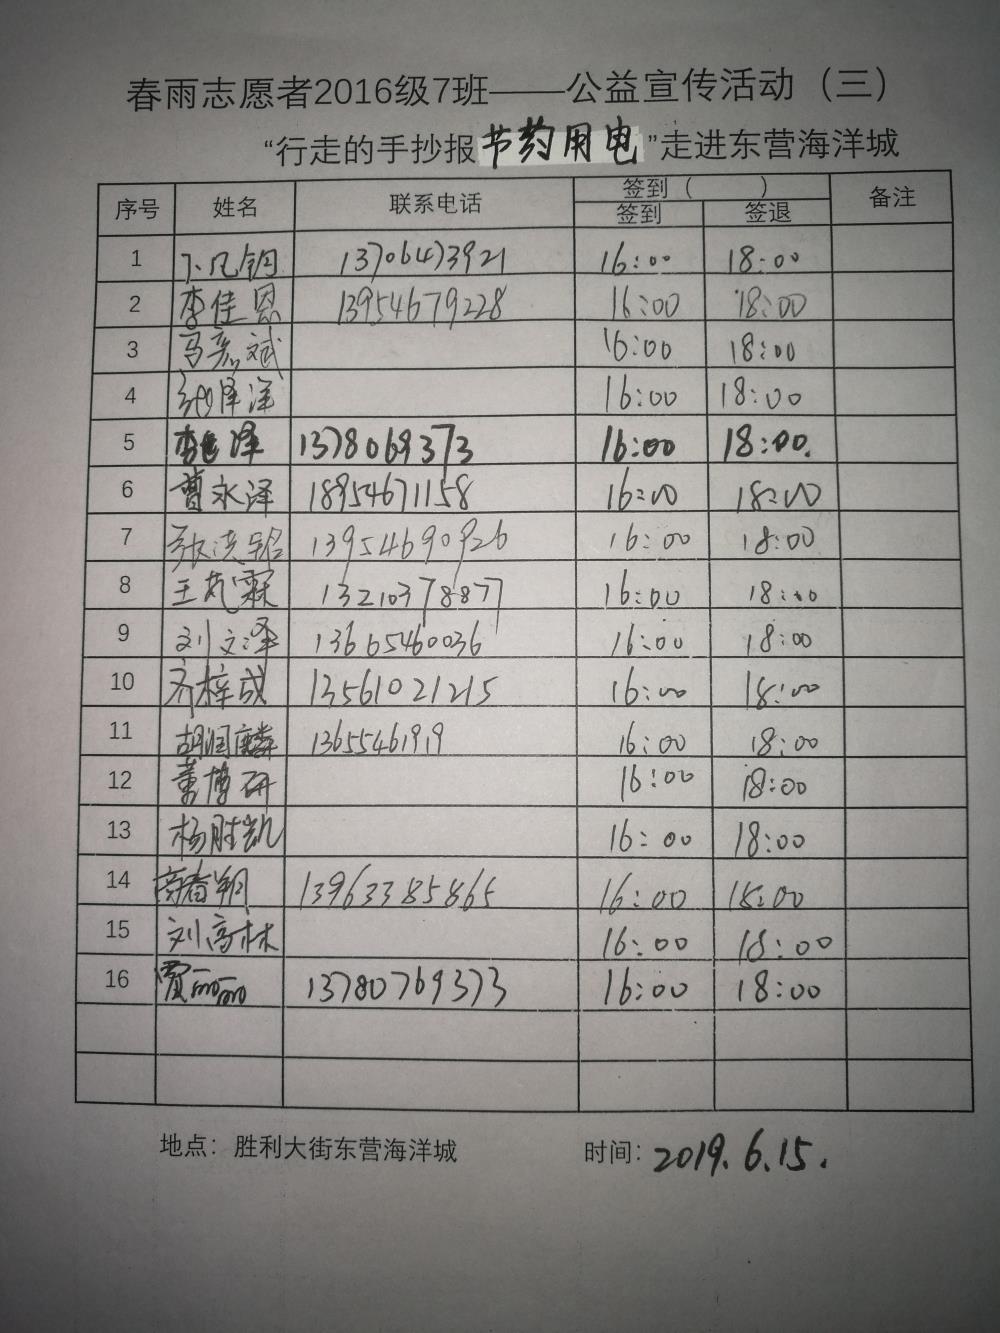 春雨志愿者2016级7班——公益宣传活动（三）
“行走的手抄报节约用电”走进东营海洋城
序号 姓名 联系电话 签到（ ） 备注
签到 签退
1 13706473921 16:00 18:00
2 李佳恩 13954679228 16:00 18:00
3 马彦斌 16:00 18:00
4 泽洋 16:00 18:00
5 李 泽 1378069373 16:00 18:00.
6 曹永泽 18954671158 16:00 18:00
7 张 铭 13954690926 16:00 18:00
8 王 霖 13210378877 16:00 18:00
9 刘文泽 13665460036 16:00 18:00
10 齐梓成 13561021215 16:00 18:00
11 胡润麟 13655461919 16:00 18:00
12 董博研 16:00 18:00
13 杨胜凯 16:00 18:00
14 商春翔 13963385865 16:00 18:00
15 刘高林 16:00 18:00
16 贾丽丽 13780769373 16:00 18:00
地点：胜利大街东营海洋城 时间：2019.6.15.